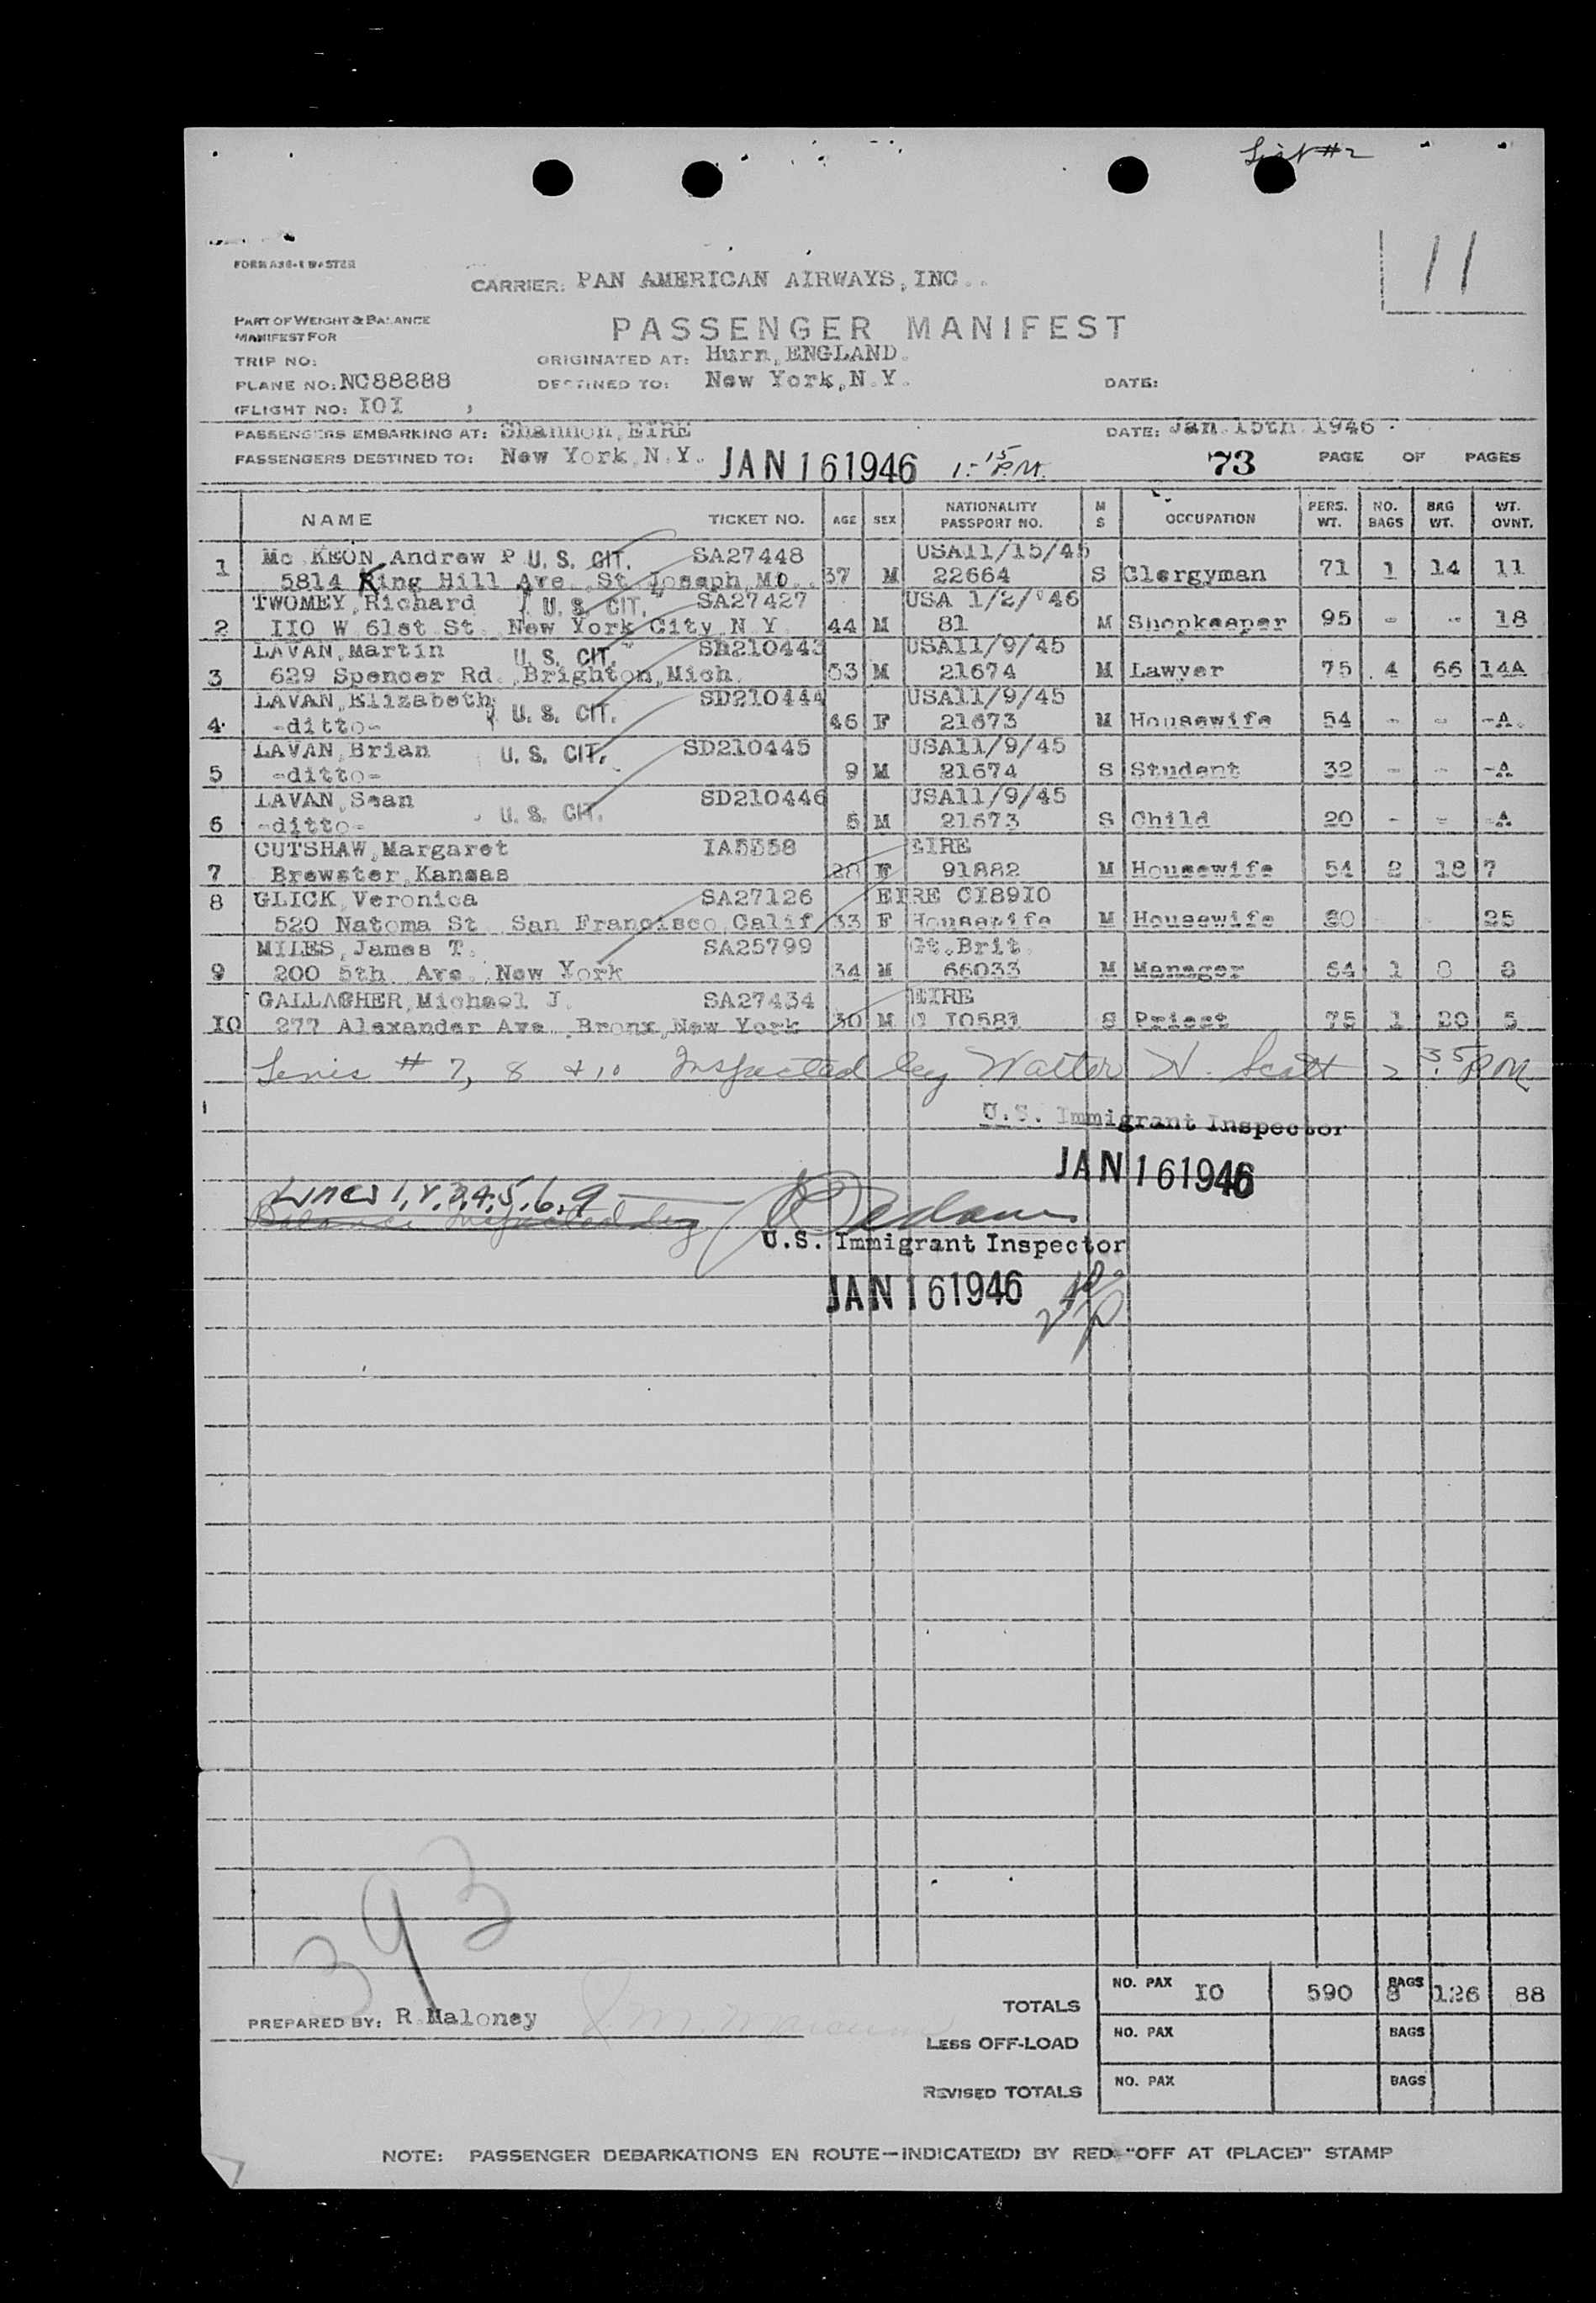 List #2
11
FORM A36-1 MASTER
CARRIER: PAN AMERICAN AIRWAYS, INC..
PART OF WEIGHT & BALANCE
MANIFEST FOR
PASSENGER MANIFEST
TRIP NO: ORIGINATED AT: Hurn, ENGLAND.
PLANE NO: NC88888 DESTINED TO: New York, N.Y. DATE:
(FLIGHT NO: IOI )
PASSENGERS EMBARKING AT: Shannon, EIRE DATE: Jan. 15th 1946
PASSENGERS DESTINED TO: New York, N.Y. JAN 16 1946 1:15 P.M. 73 PAGE OF PAGES
NAME TICKET NO. AGE SEX NATIONALITY PASSPORT NO. M S OCCUPATION PERS. WT. NO. BAGS BAG WT. WT. OVNT.
1 Mc KEON Andrew P U. S. CIT. SA27448 USA11/15/45
5814 King Hill Ave. St Joseph, Mo. 37 M 22664 S Clergyman 71 1 14 11
TWOMEY, Richard U. S. CIT. SA27427 USA 1/2/'46
2 IIO W 61st St. New York City N Y 44 M 81 M Shopkeeper 95 - - 18
LAVAN, Martin U. S. CIT. SD210443 USA11/9/45
3 629 Spencer Rd. Brighton, Mich. 53 M 21674 M Lawyer 75 4 66 14A
LAVAN, Elizabeth U. S. CIT. SD210444 USA11/9/45
4 -ditto- 46 F 21673 M Housewife 54 - - -A.
LAVAN, Brian U. S. CIT. SD210445 USA11/9/45
5 -ditto- 9 M 21674 S Student 32 - - -A
LAVAN, Sean U. S. CIT. SD210446 USA11/9/45
6 -ditto- 5 M 21673 S Child 20 - - -A
CUTSHAW, Margaret IA5358 EIRE
7 Brewster, Kansas 28 F 91882 M Housewife 54 2 18 7
8 GLICK, Veronica SA27126 EIRE CI89IO
520 Natoma St. San Francisco, Calif 33 F Housewife M Housewife 25
MILES, James T. SA25799 Gt. Brit.
9 200 5th. Ave., New York 34 M 66033 M Manager 64 1 8 8
GALLAGHER, Michael J. SA27434 EIRE
IO 277 Alexander Ave. Bronx, New York 30 M C IO581 S Priest 75 1 20 5
# 7, 8 & 10 Inspected by Walter H. Scott 2:35 PM
U.S. Immigrant Inspector
JAN 16 1946
Lines 1, 2, 3, 4, 5, 6, 9
Balance Inspected by
U.S. Immigrant Inspector
JAN 16 1946
393
PREPARED BY: R. Maloney
TOTALS NO. PAX IO 590 BAGS 8 126 88
LESS OFF-LOAD NO. PAX BAGS
REVISED TOTALS NO. PAX BAGS
NOTE: PASSENGER DEBARKATIONS EN ROUTE—INDICATE(D) BY RED "OFF AT (PLACE)" STAMP